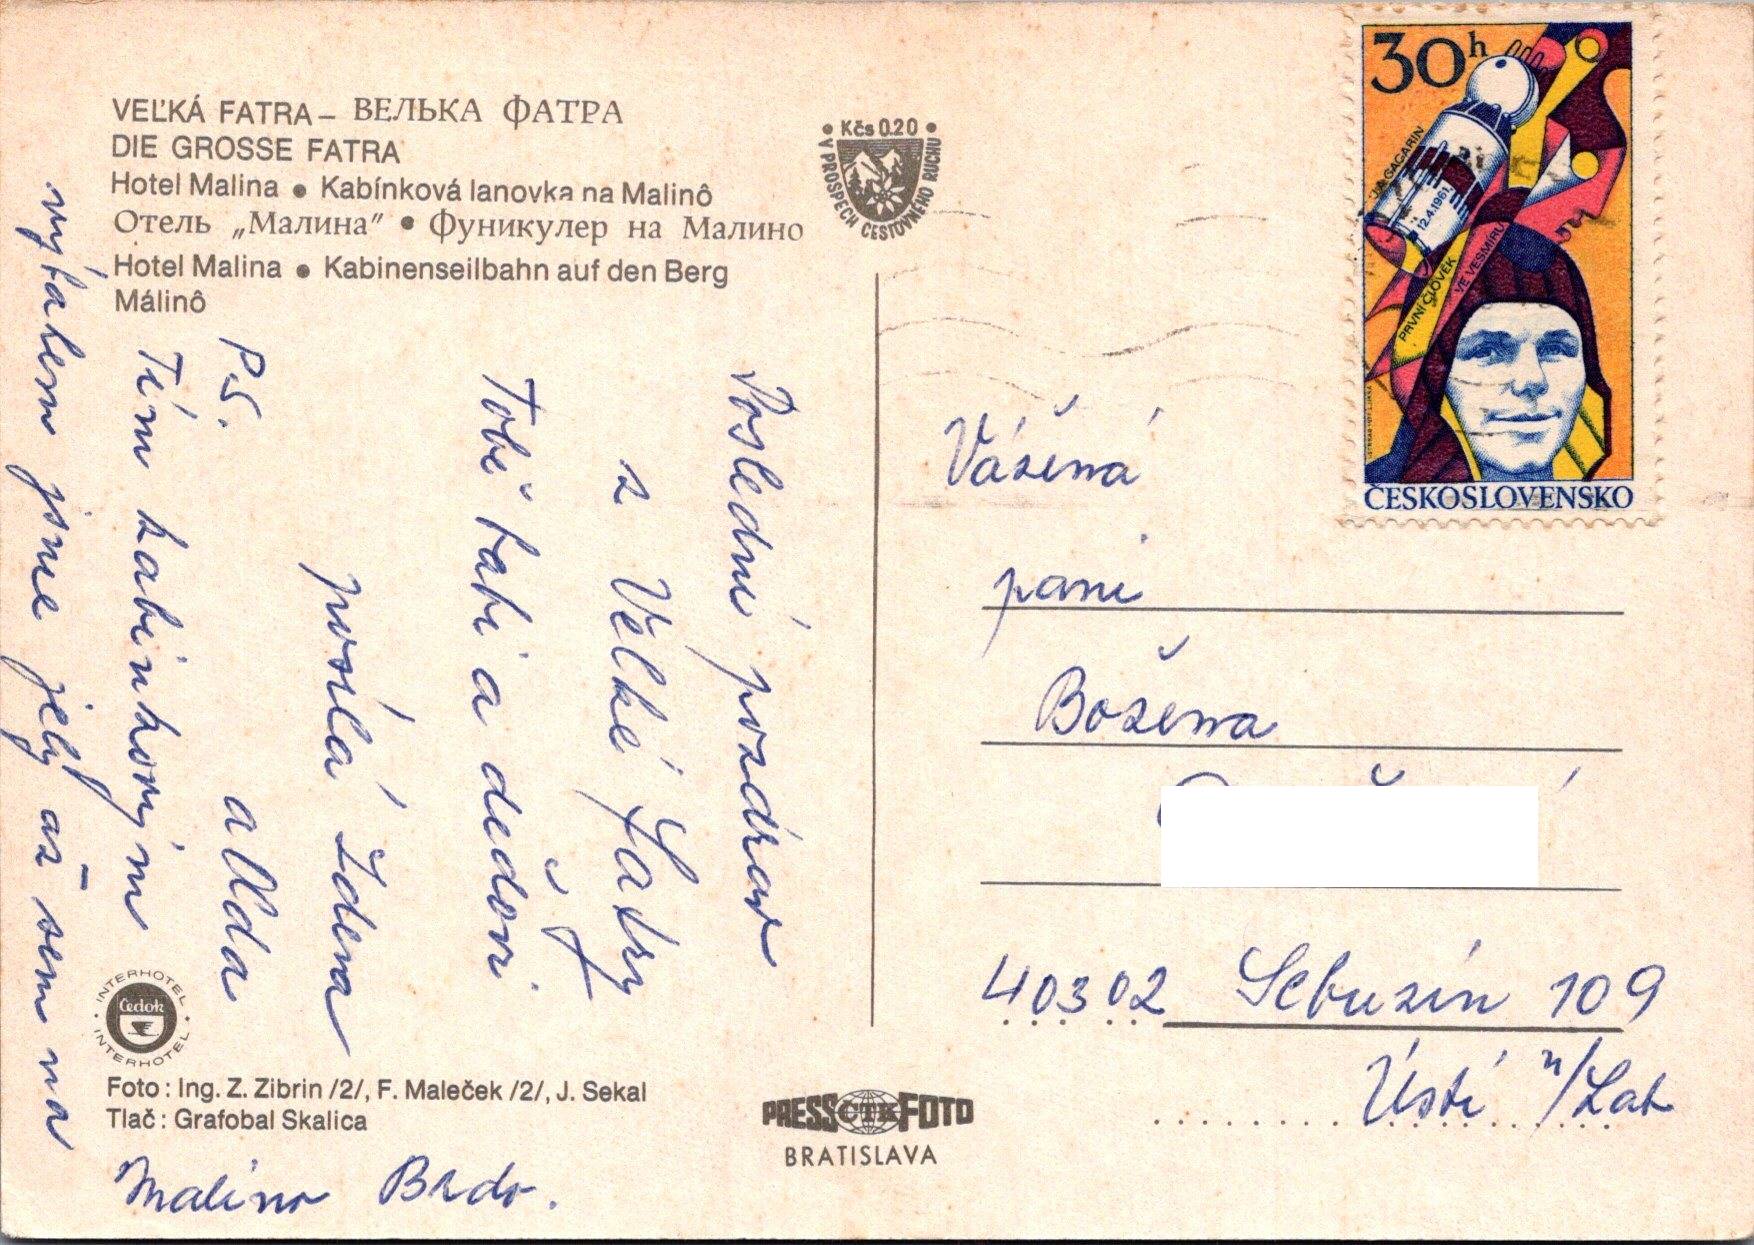 VEĽKÁ FATRA – ВЕЛЬКА ФАТРА
DIE GROSSE FATRA
Hotel Malina • Kabínková lanovka na Malinô
Отель „Малина" • Фуникулер на Малино
Hotel Malina • Kabinenseilbahn auf den Berg
Málinô
• Kčs 0.20 •
V PROSPECH CESTOVNÉHO RUCHU
30h
J.A. GAGARIN
12.4.1961
PRVNÍ ČLOVĚK
VE VESMÍRU
ČESKOSLOVENSKO
Poslední pozdrav
z Velké Fatry
Tobě babi a dědovi
posílá Zdena
a Olda
P.S.
Tím kabinkovým
výtahem jsme jely až sem na
Malino Brdo.
Vážená
paní
Božena
40302 Sebuzín 109
Ústí n/Lab
INTERHOTEL
Čedok
INTERHOTEL
Foto : Ing. Z. Zibrin /2/, F. Maleček /2/, J. Sekal
Tlač : Grafobal Skalica
PRESS ČTK FOTO
BRATISLAVA